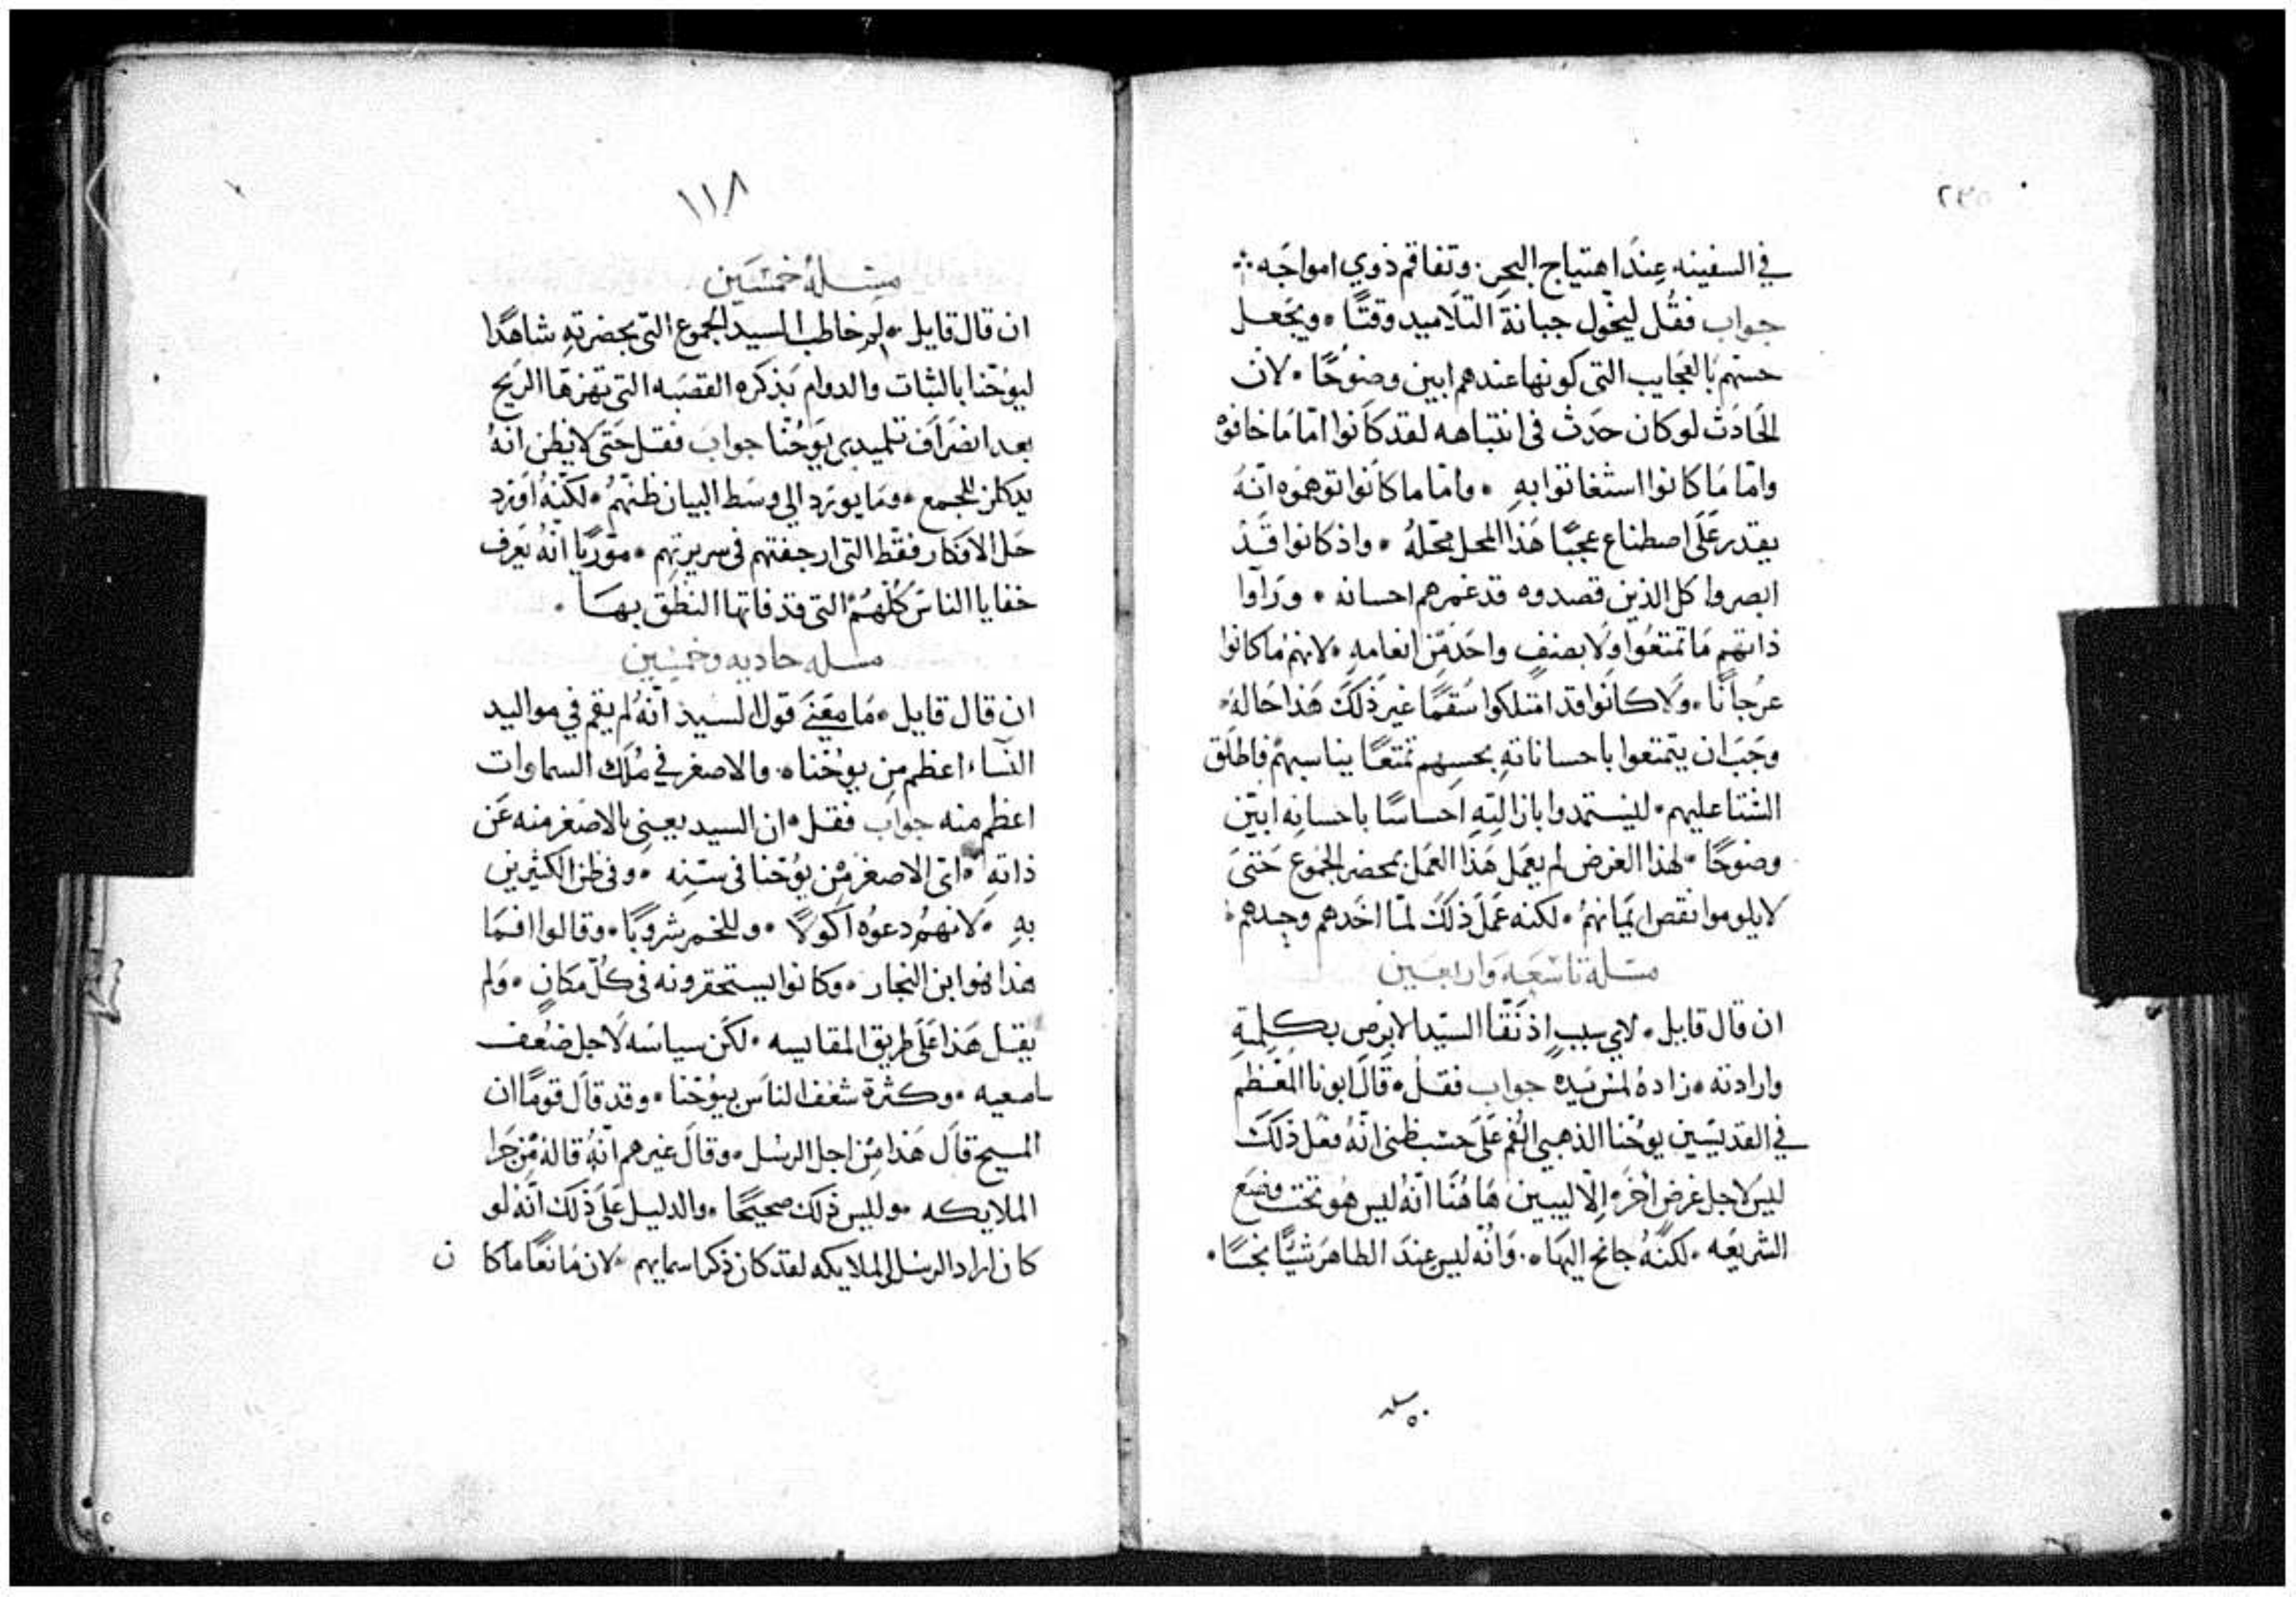 في السفينه عِندَ اهتياج البحر. وتفاقم ذوي امواجَه
جواب فقُل ليخَول جبانةَ التلاميد وقتًا • ويجَعل
حسهم بالعَجايب التى كونها عندهم ابين وضوُحًا • لان
الحَادث لو كان حدَث فى انتباهه لقد كَانوا امّا مَا خافوه
وامّا مَا كانوا استغاثوا بهِ • وامّا ما كَانوا توهموه انهُ
يقدر عَلى اصطناع عجبًا هَذا المحل محلهُ • واذ كانوا قَد
ابصروا كل الذين قصدوه قد غمرهم احسانه • ورَاوا
ذاتهم مَا تمتعَوا ولا بصنفٍ واحَد مِن انعامهِ • لانهم مَا كانوا
عرُجانًا • ولا كانَوا قد امتلكوا سُقمًا غيرَ ذلكَ هَذا حَالهُ •
وجَبَ ان يتمتعوا باحساناتهِ بحسِهم تمتعًا يناسبهم فاطلَق
الشتا عليهم • ليستمدوا بازالتِهِ احساسًا باحسانهِ ابيَن
وضوحًا • لهذا الغرض لم يعمَل هَذا العمَل بمحضر الجموُع حَتىَ
لا يلوموا نقص ايمانهمُ • لكنه عَمل ذلكَ لمّا اخَدهم وحِدهم
مسَلة تاسَعَه وَاربعَين
ان قال قايل • لاي سببٍ اذ نَقّا السَيد الابرص بكلِمتهِ
وارادته • زادهُ لمس يَده جواب فقلُ • قَال ابونا المعَظم
في القديسَين يوحُنا الذهبي الفُم عَلى حسَب ظنى انهُ فعَل ذلكَ
ليسَ لاجل غرض اخَر الا ليبين هَا هُنَا انهُ ليس هُو تحَت وضَع
الشريعَه • لكنّهُ جانح اليهَا • وَانه ليس عِندَ الطاهر شيًا نجسًا •
مسله ٥٠
١١٨
مسَلهُ خمسَين
ان قال قايل • لِم خاطب السيد الجموع التى بحضرتهِ شاهدًا
ليوحَنا بالثبات والدوام بَذكره القصَبه التى تهزهَا الريَح
بعد انصَرافَ تلميدى يوَحُنّا جوابَ فقل حَتىَ لا يظن انهُ
يدكلن للجمع • ومَا يورَد الي وسَط البيان ظنهمُ • لكنّهُ اوَرد
حَل الافكار فقط التى ارجفتهم فى سريرتهِم • موَريًا انهُ يَعرف
خفايا الناسَ كُلهُم التى قد فاتها النطق بهَا •
مسله حاديه وخمسَين
ان قال قايل • مَا معَنىَ قول السيد انهُ لم يقم في مواليد
النسَاء اعظم مِن يوحُنا • والاصغر في مُلك السماوات
اعظم منه جواب فقل • ان السيد يعنِى بالاصَغر منه عَن
ذاتهِ • اىَ الاصغر مِن يوُحَنا فى سنه • وفى ظن الكثيرين
بهِ • لانهمُ دعوُه اكولًا • وللخمر شروبًا • وقالوا افمَا
هذا هُوا بن النجار • وكانوا يستحقرونه فى كُل مَكانٍ • ولم
يقل هَذا عَلى طريق المقايسه • لكَن سياسَه لاجل ضُعف
سامعيه • وكثرة شغف الناسَ بيوُحَنا • وقد قَال قومًا ان
المسيح قَال هَذا مِن اجل الرسُل • وقالَ غيرهم انهُ قالهُ مِن جَرا
الملايكه • وليس ذلك صحيحًا • والدليل عَلى ذلكَ انهُ لو
كان اراد الرسل او الملايكه لقد كان ذكر اسمايهم • لان مَانعًا مَا كا ن